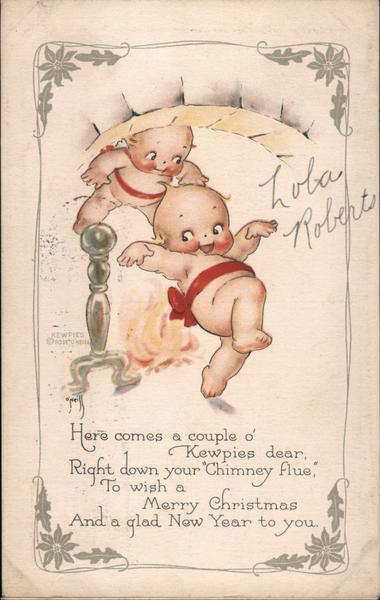 Lola
Roberts
KEWPIES
© ROSE O'NEILL
O'Neill
Here comes a couple o'
Kewpies dear,
Right down your "Chimney flue,"
To wish a
Merry Christmas
And a glad New Year to you.